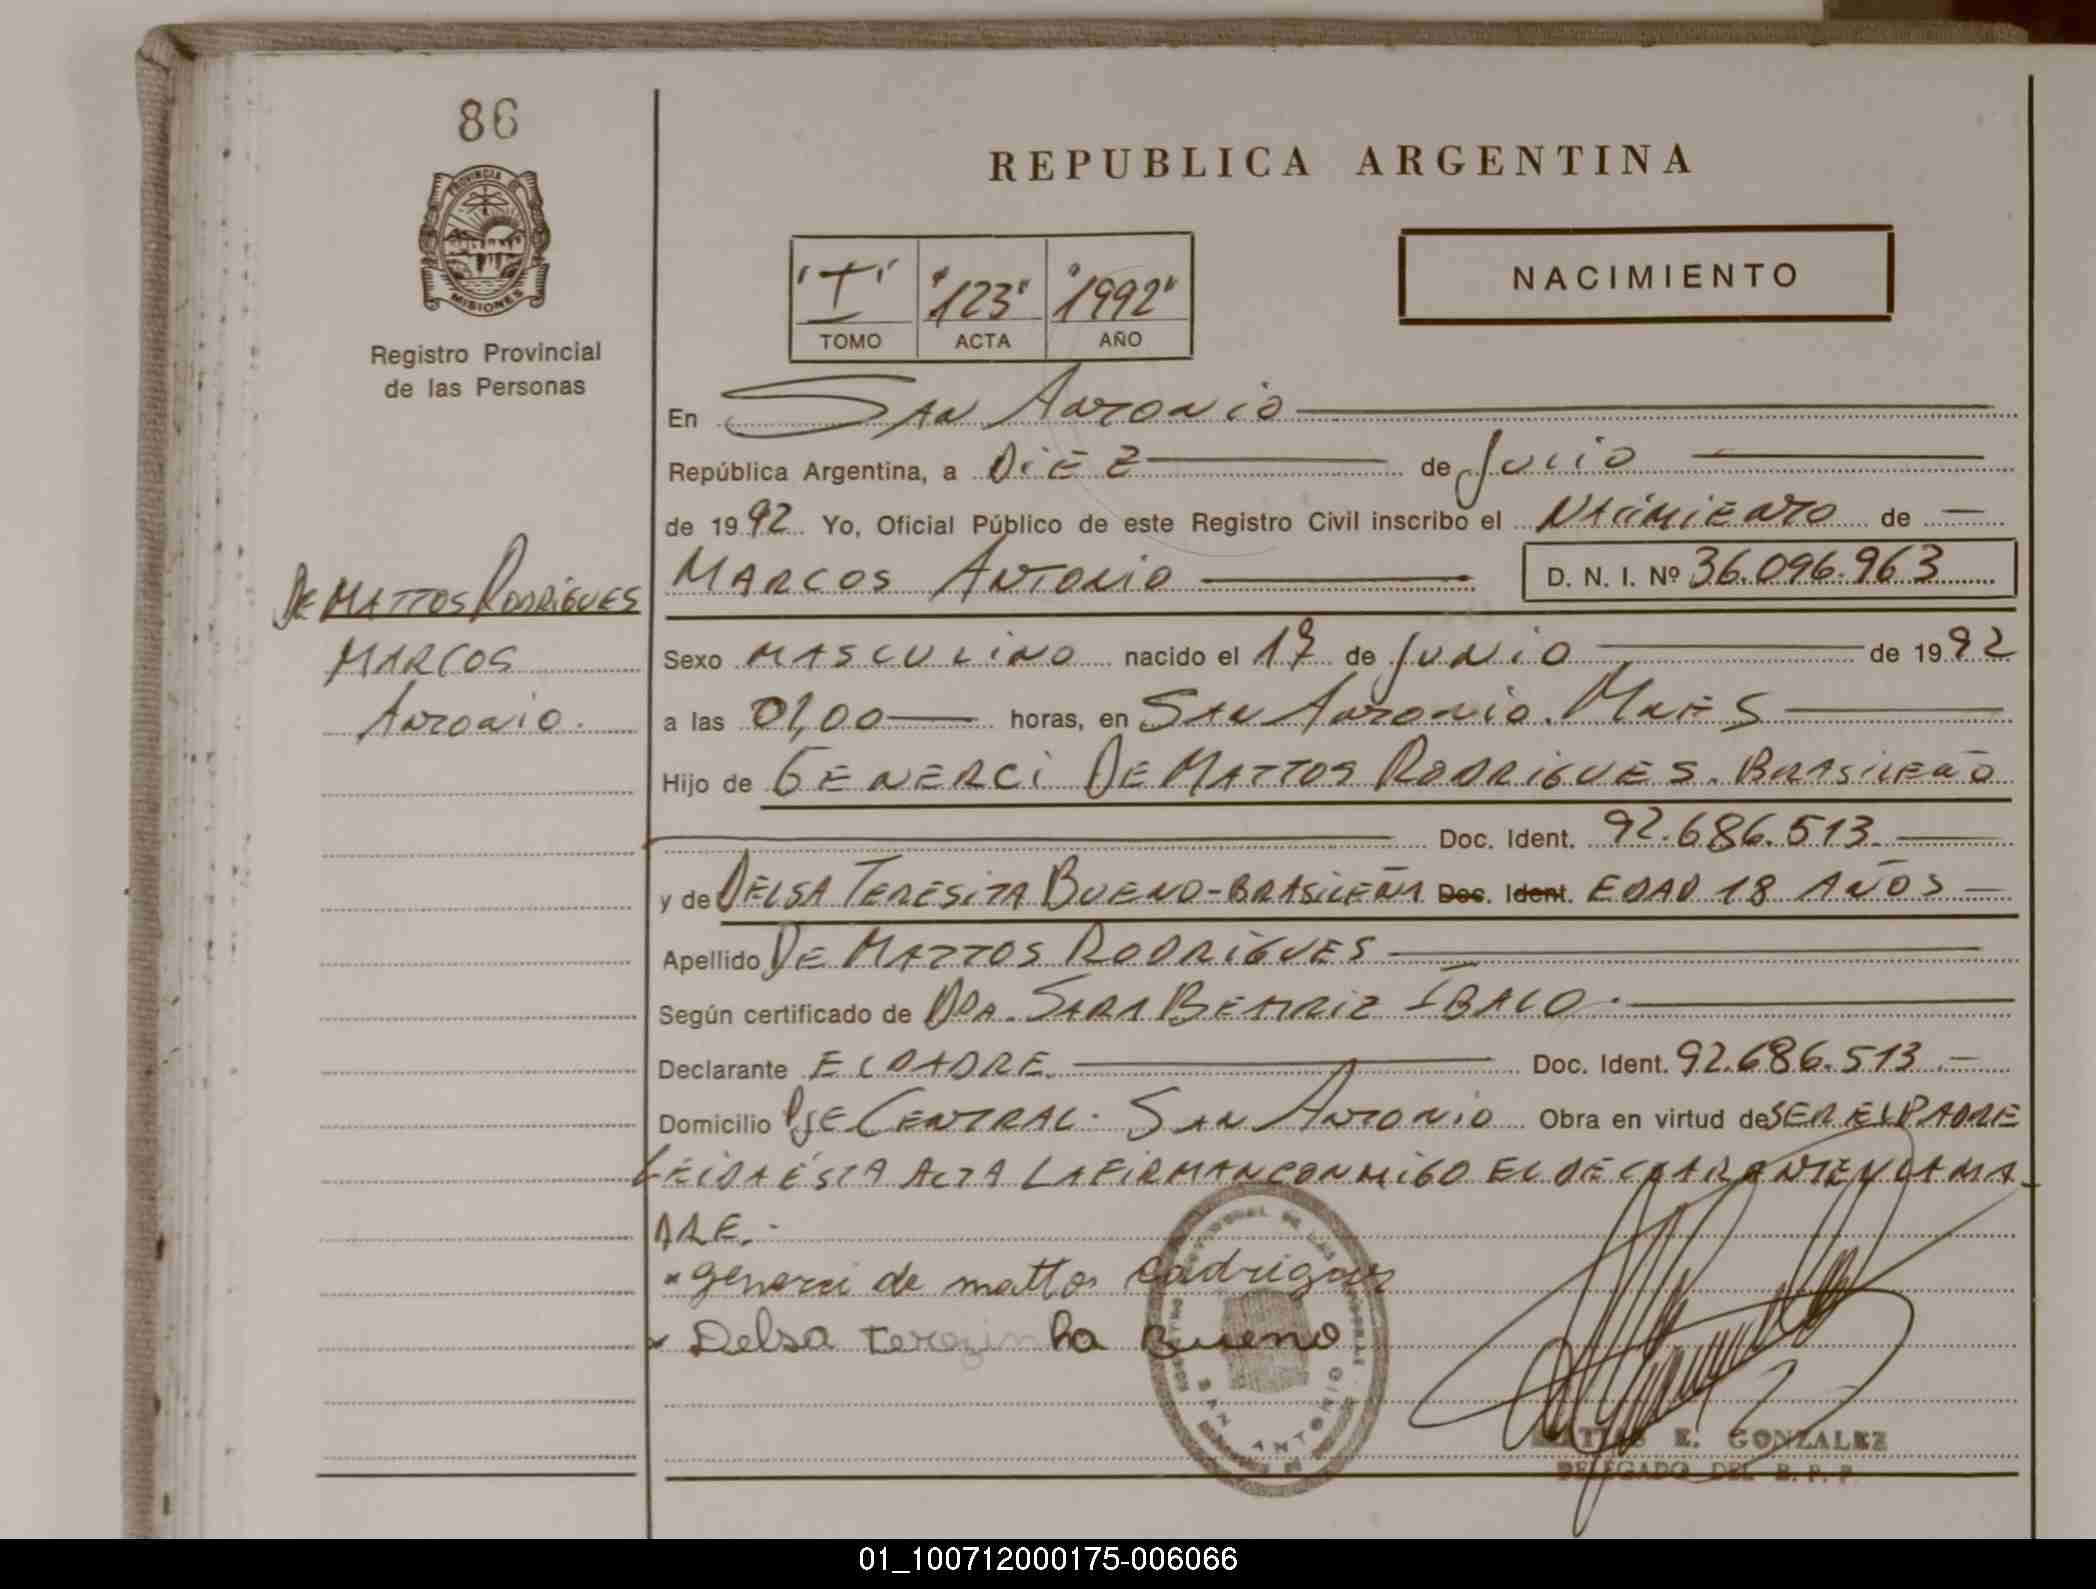 86
PROVINCIA DE
MISIONES
Registro Provincial
de las Personas
REPUBLICA ARGENTINA
"I" "123" "1992"
TOMO ACTA AÑO
NACIMIENTO
En SAN ANTONIO
República Argentina, a DIEZ de JULIO
de 1992 Yo, Oficial Público de este Registro Civil inscribo el NACIMIENTO de —
MARCOS ANTONIO D. N. I. Nº 36.096.963
DE MATTOS RODRIGUES
MARCOS
ANTONIO.
Sexo MASCULINO nacido el 17 de JUNIO de 1992
a las 01,00 horas, en SAN ANTONIO. MNES
Hijo de GENERCI DE MATTOS RODRIGUES. BRASILEÑO
Doc. Ident. 92.686.513.
y de DELSA TERESITA BUENO-BRASILEÑA Doc. Ident. EDAD 18 AÑOS —
Apellido DE MATTOS RODRIGUES
Según certificado de DRA. SARA BEATRIZ IBALO.
Declarante EL PADRE. Doc. Ident. 92.686.513.—
Domicilio PJE CENTRAL. SAN ANTONIO Obra en virtud de SER EL PADRE
LEIDA ÉSTA ACTA LA FIRMAN CONMIGO EL DECLARANTE Y LA MA-
DRE.
generci de mattos Rodrigues
x Delsa terezinha Bueno
SAN ANTONIO
E. GONZALEZ
DELEGADO DEL R. P. P.
01_100712000175-006066